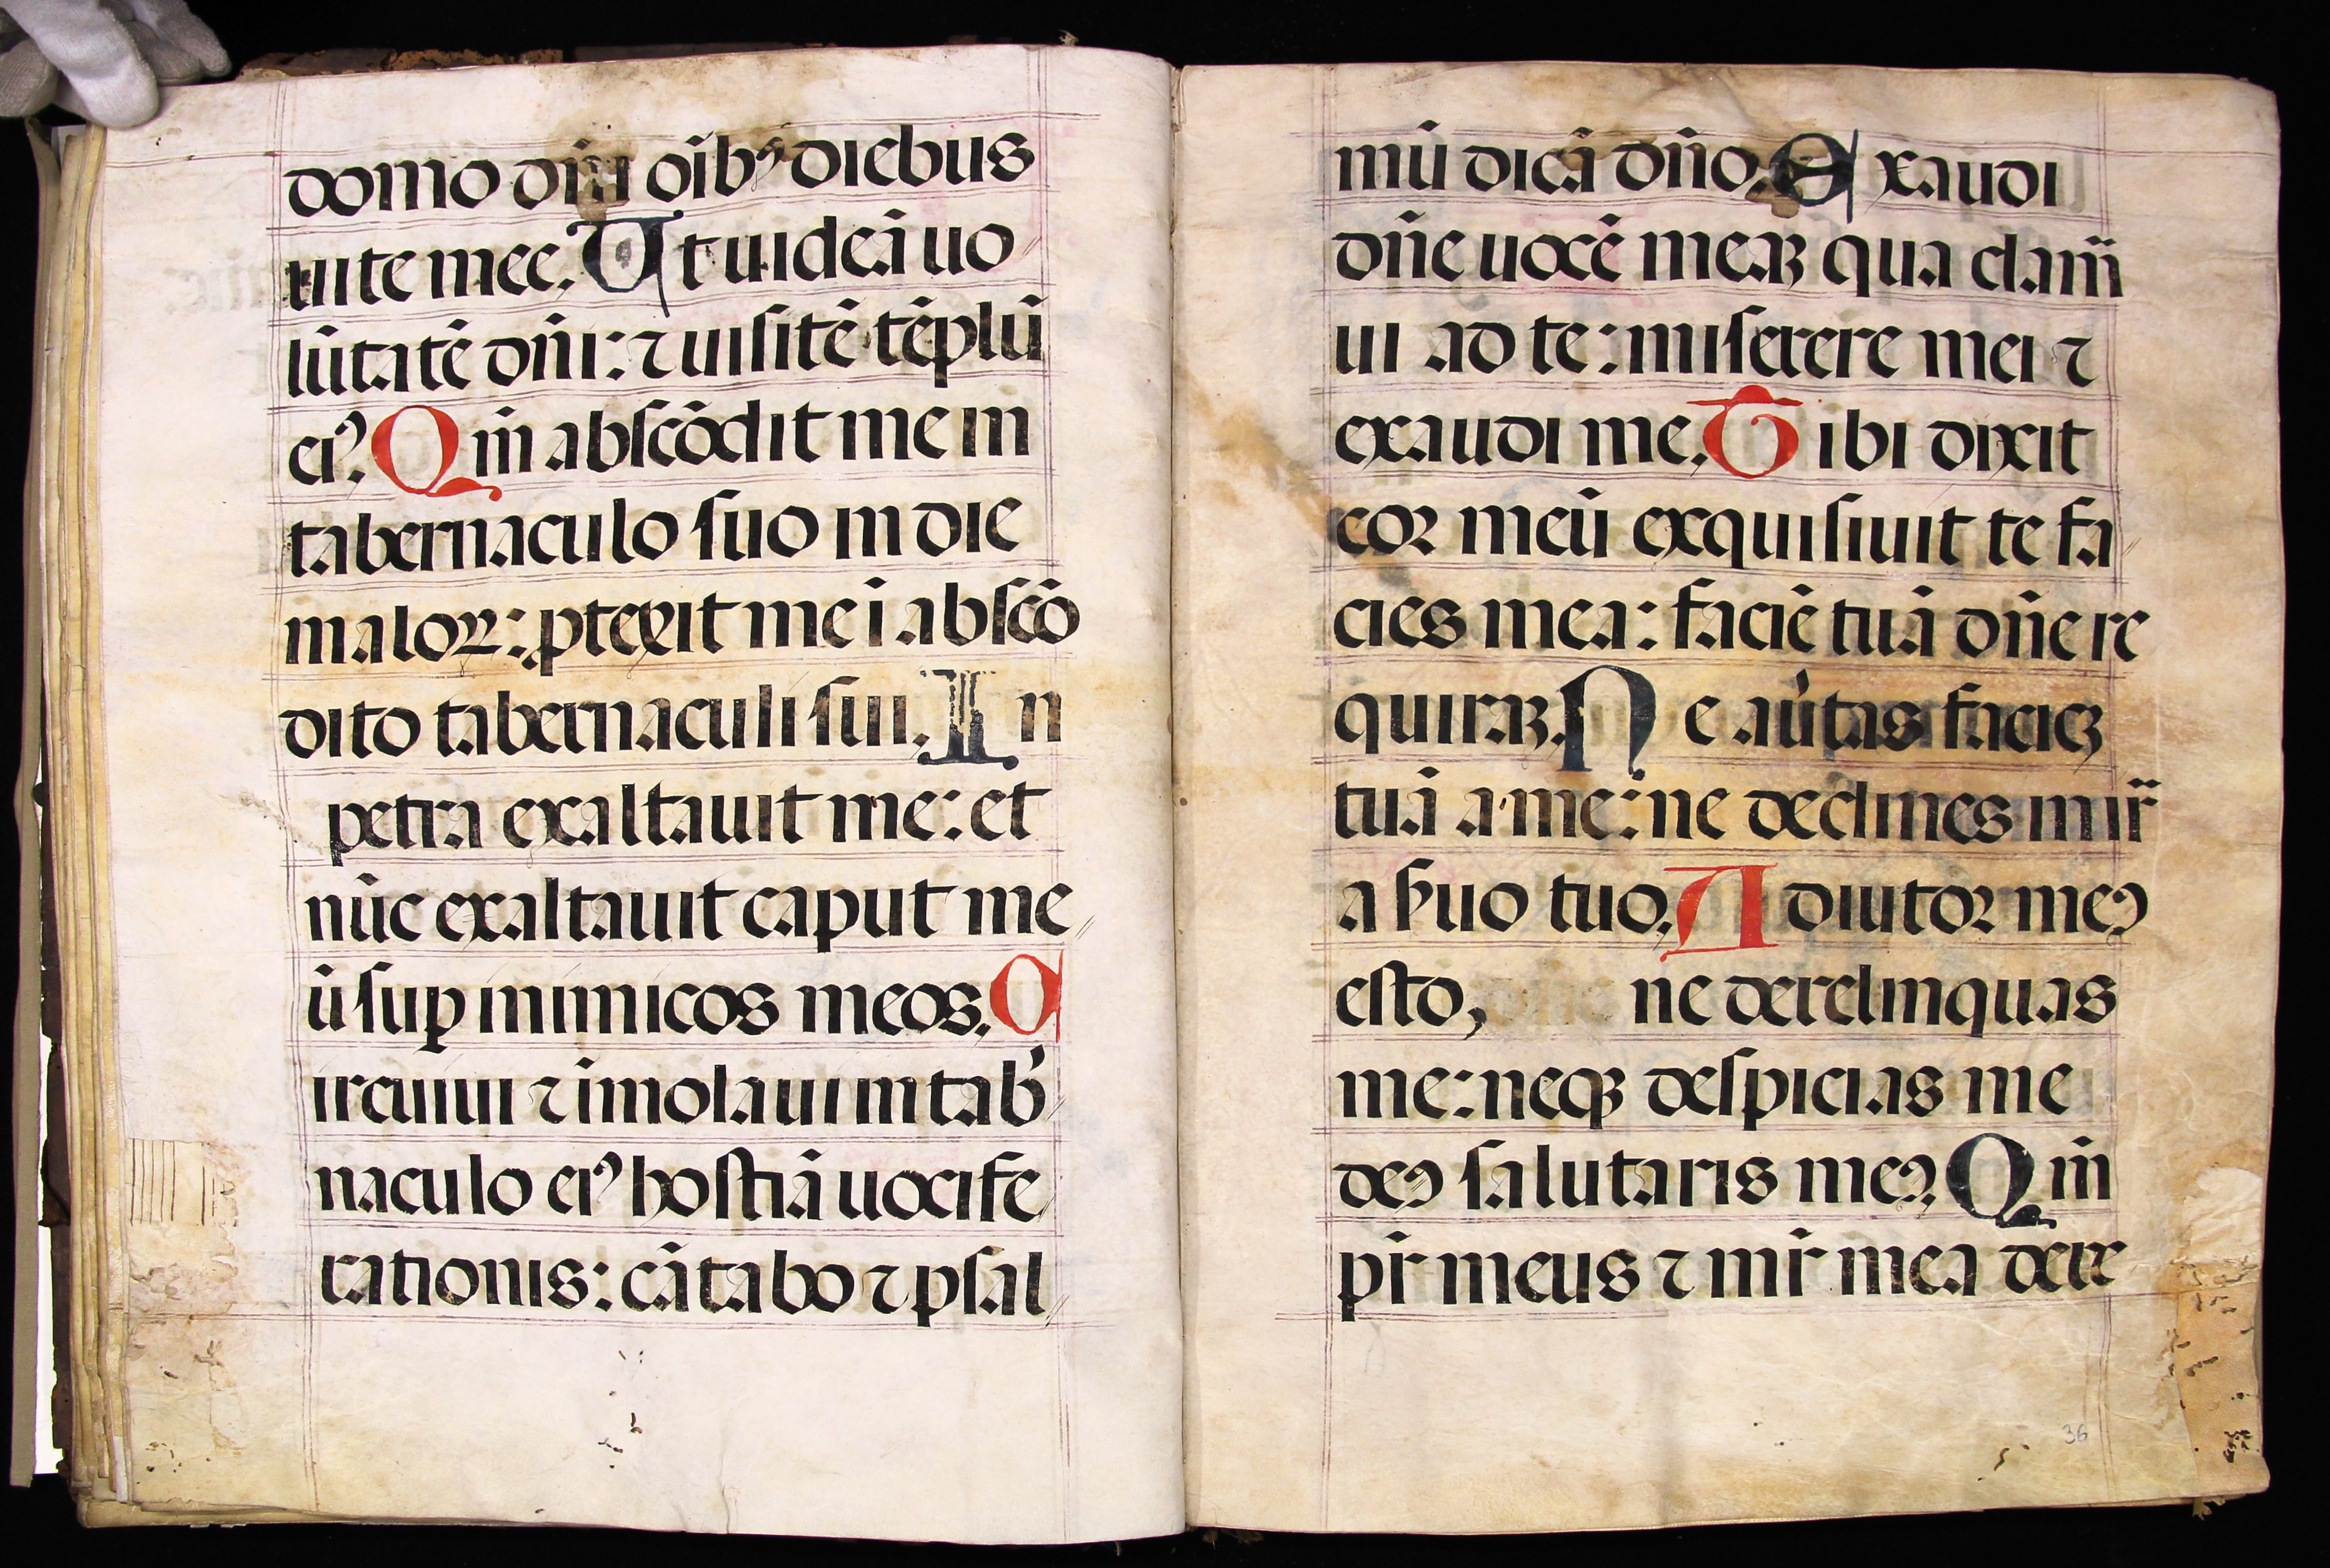 domo dñi oĩbꝰ diebus
uite mee. Ut uideã uo
lũtatẽ dñi: ⁊ uisitẽ tẽplũ
eiꝰ. Qm̃ abscõdit me in
tabernaculo suo in die
maloꝝ: ptexit me i abscõ
dito tabernaculi sui. In
petra exaltauit me: et
nũc exaltauit caput me
ũ suꝑ inimicos meos. C
ircuiui ⁊ imolaui in tab̃
naculo eiꝰ hostiã uocife
rationis: cãtabo ⁊ psal
mũ dicã dño. Exaudi
dñe uocẽ meaꝫ qua clam̃
ui ad te: miserere mei ⁊
exaudi me. Tibi dixit
cor meũ exquisiuit te fa
cies mea: faciẽ tuã dñe re
quiraꝫ. Ne aũtas facieꝫ
tuã a me: ne declines in ir̃
a ẜuo tuo. Adiutor meꝯ
esto, ne derelinquas
me: neqꝫ despicias me
deꝯ salutaris meꝯ. Qm̃
pr̃ meus ⁊ mr̃ mea dere
36